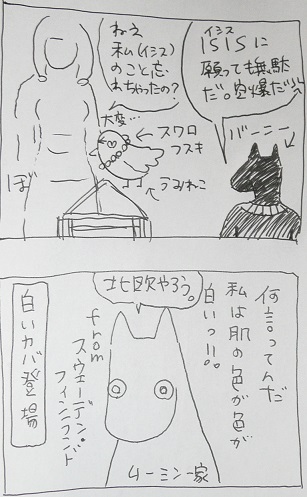 ISISに
イシス
願っても無駄
だ。空爆だッ
バーニー
ねえ
私(イシス)
のこと忘
れちゃったの?
大変…
←スワロ
フスキ
←うみねこ
ぼ
何言ってんだ
私は肌の色が色が
白いっ!!。
北欧やろう。
from
スウェーデン・
フィンランド
ムーミン一家
白いカバ登場